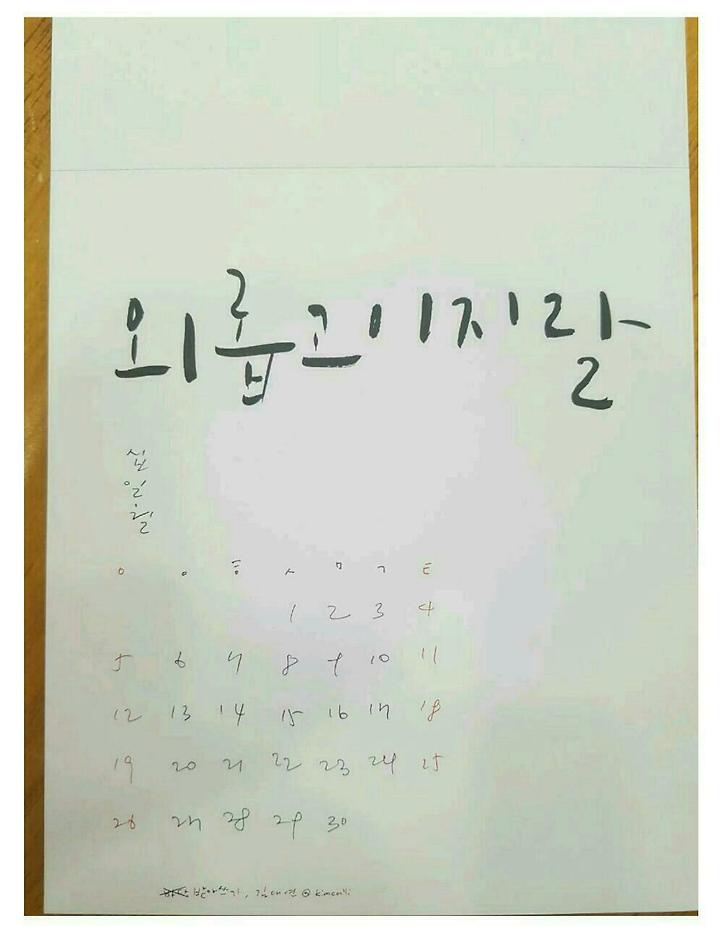 외롭고 11 지랄
십
일
월
ㅇ ㅇ ㅎ ㅅ ㅁ ㄱ ㅌ
1 2 3 4
5 6 7 8 9 10 11
12 13 14 15 16 17 18
19 20 21 22 23 24 25
26 27 28 29 30
받아쓰기, 김대연 @